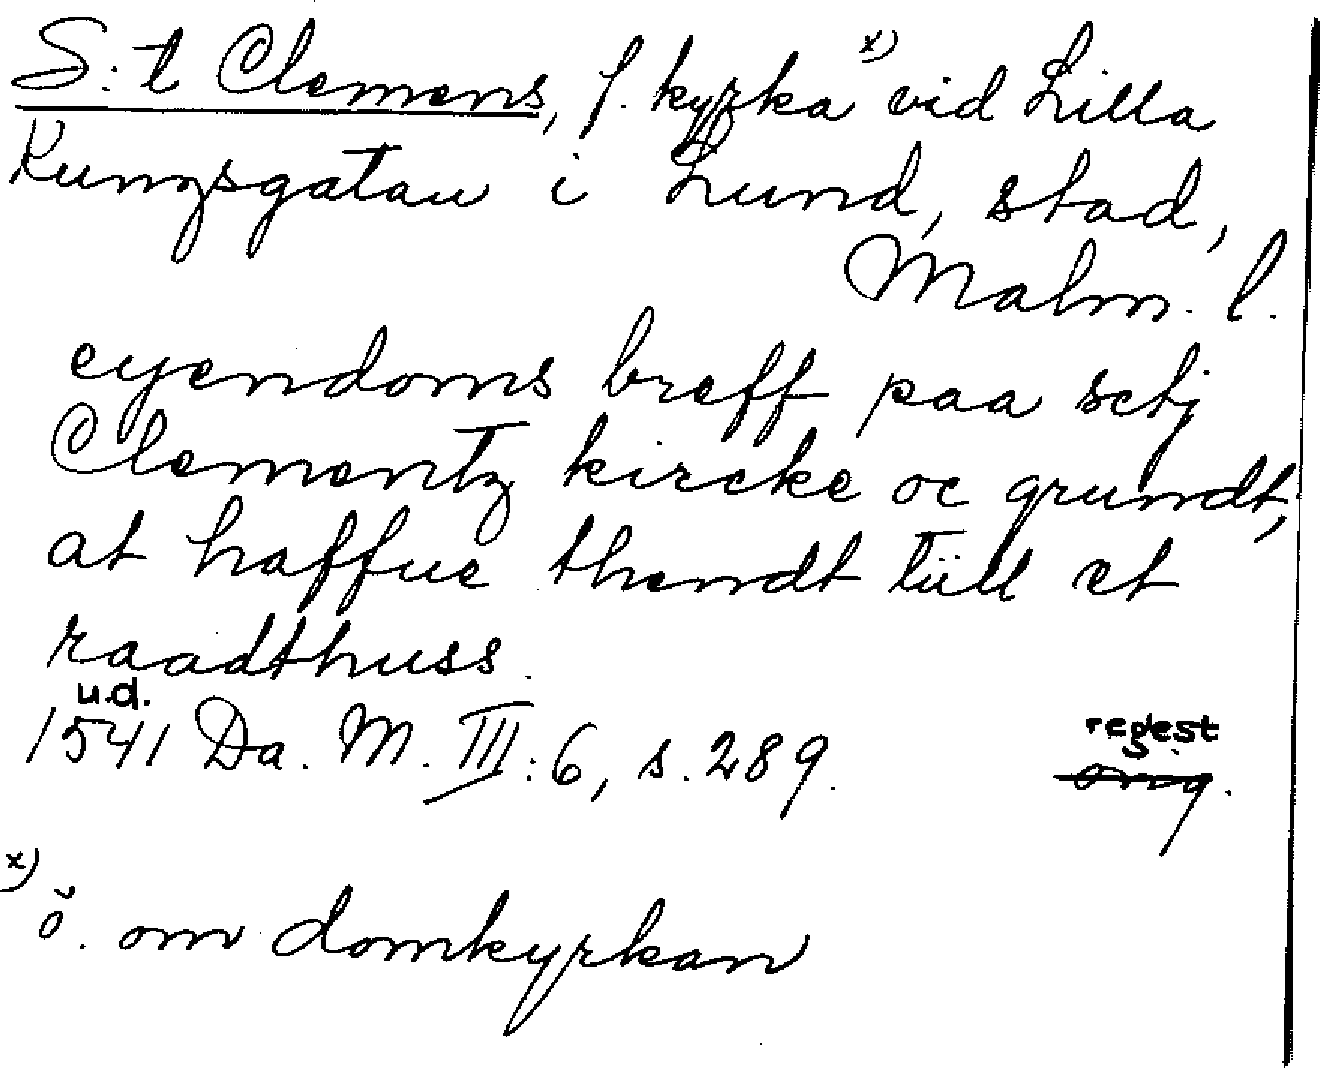 S:t Clemens, f. kyrka x) vid Lilla
Kungsgatan i Lund, stad,
Malm. l.
eyendoms breff paa sctj
Clementz kircke oc grundt,
at haffue thendt tiill et
raadthuss.
u.d.
1541 Da. M. III:6, s. 289.
regest
orig.
x)
ö. om domkyrkan